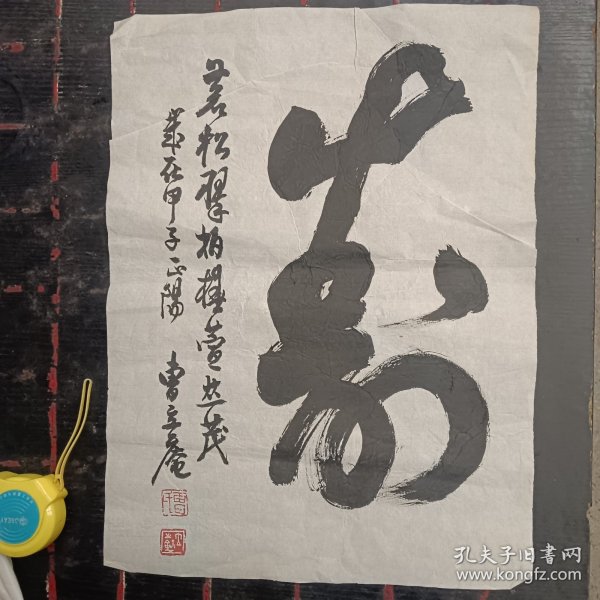 寿
苍松翠柏椿萱并茂
岁在甲子正阳
曹立庵
孔夫子旧书网
www.kongfz.com